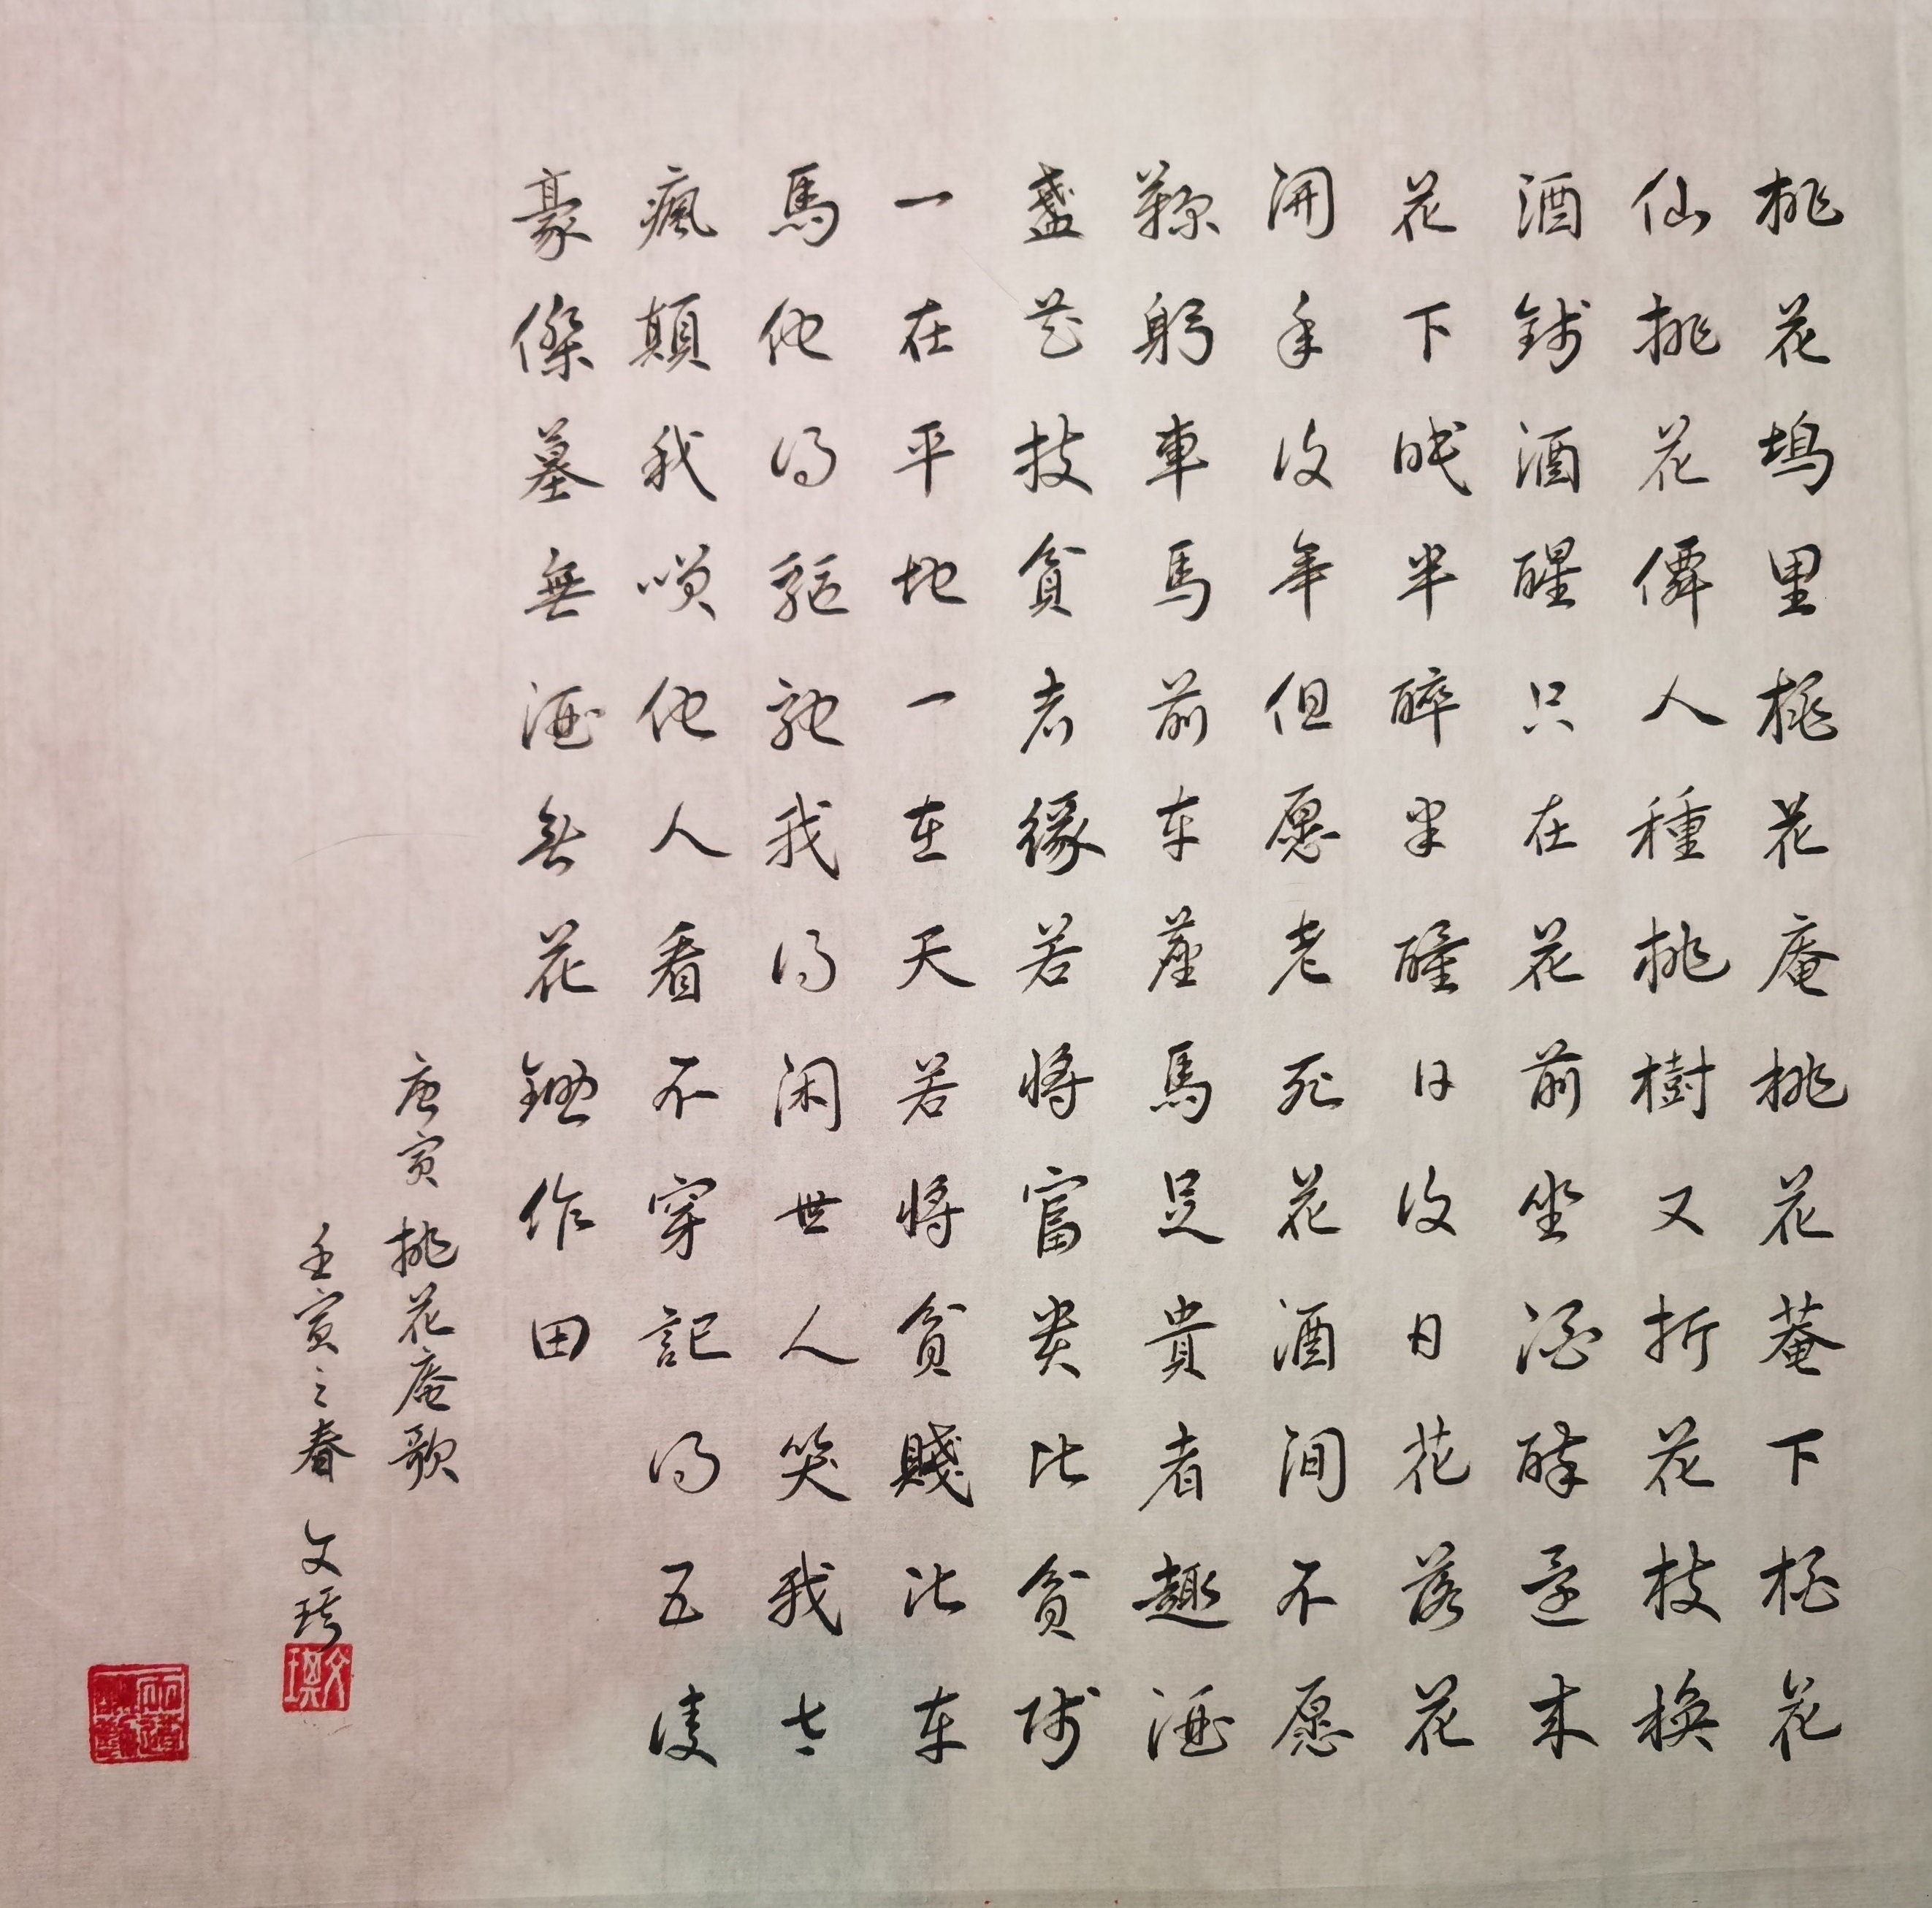 桃花塢里桃花庵桃花菴下桃花
仙桃花僊人種桃樹又折花枝換
酒錢酒醒只在花前坐酒醉還來
花下眠半醉半醒日復日花落花
開年復年但愿老死花酒間不愿
鞠躬車馬前车塵馬足貴者趣酒
盞花枝貧者緣若將富貴比貧賤
一在平地一在天若將貧賤比车
馬他得驅馳我得闲世人笑我太
瘋顛我笑他人看不穿記得五陵
豪傑墓無酒無花鋤作田
唐寅桃花庵歌
壬寅之春 文